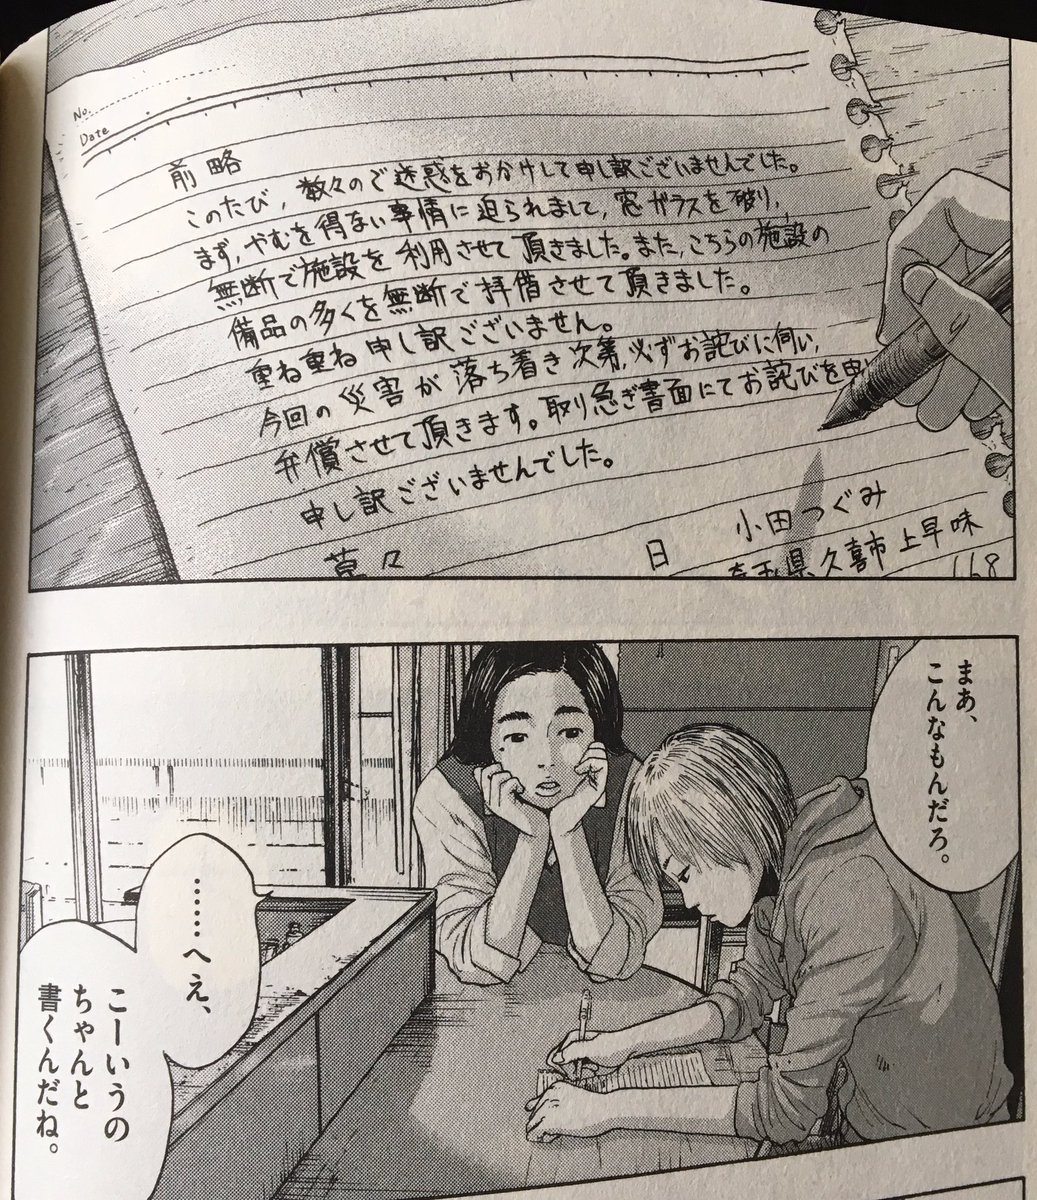 No.
Date
前略
このたび，数々のご迷惑をおかけして申し訳ございませんでした。
まず，やむを得ない事情に迫られまして，窓ガラスを破り，
無断で施設を利用させて頂きました。また，こちらの施設の
備品の多くを無断で拝借させて頂きました。
重ね重ね申し訳ございません。
今回の災害が落ち着き次第，必ずお詫びに伺い，
弁償させて頂きます。取り急ぎ書面にてお詫びを申
申し訳ございませんでした。
草々
日
小田つぐみ
埼玉県久喜市上早味
168
まあ、
こんなもんだろ。
……へえ、
こーいうの
ちゃんと
書くんだね。